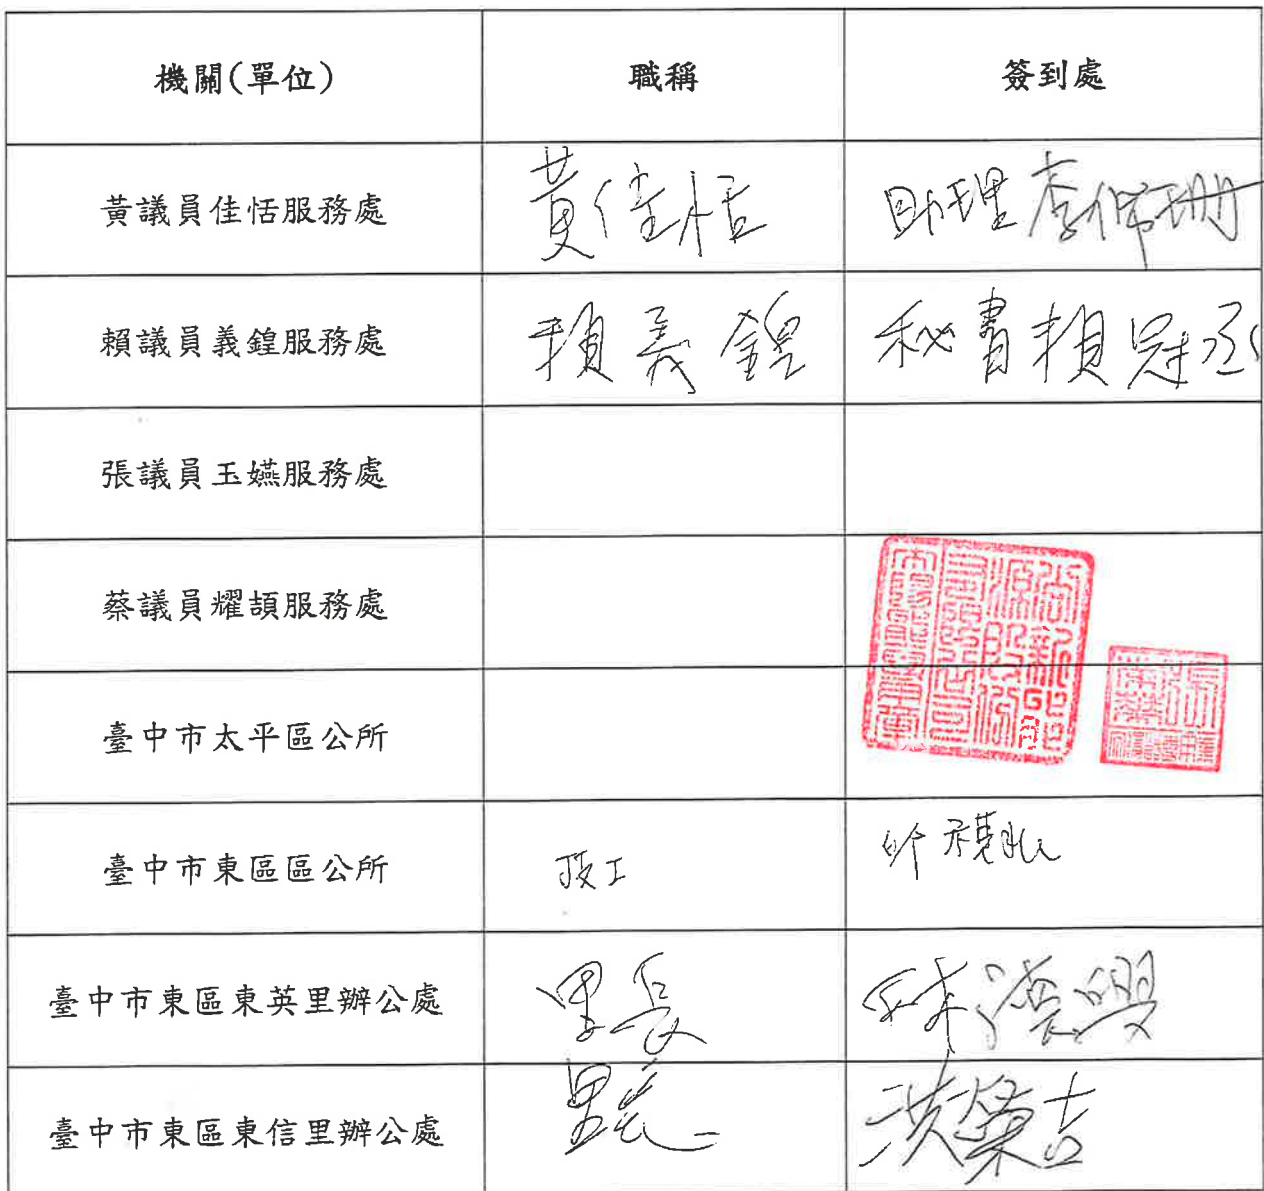 機關(單位) 職稱 簽到處
黃議員佳恬服務處 黃佳恬 助理 李佩珊
賴議員義鍠服務處 賴義鍠 秘書 賴冠丞
張議員玉嬿服務處
蔡議員耀頡服務處
臺中市太平區公所
臺中市東區區公所 技工
臺中市東區東英里辦公處 里長
臺中市東區東信里辦公處 里長 洪榮吉